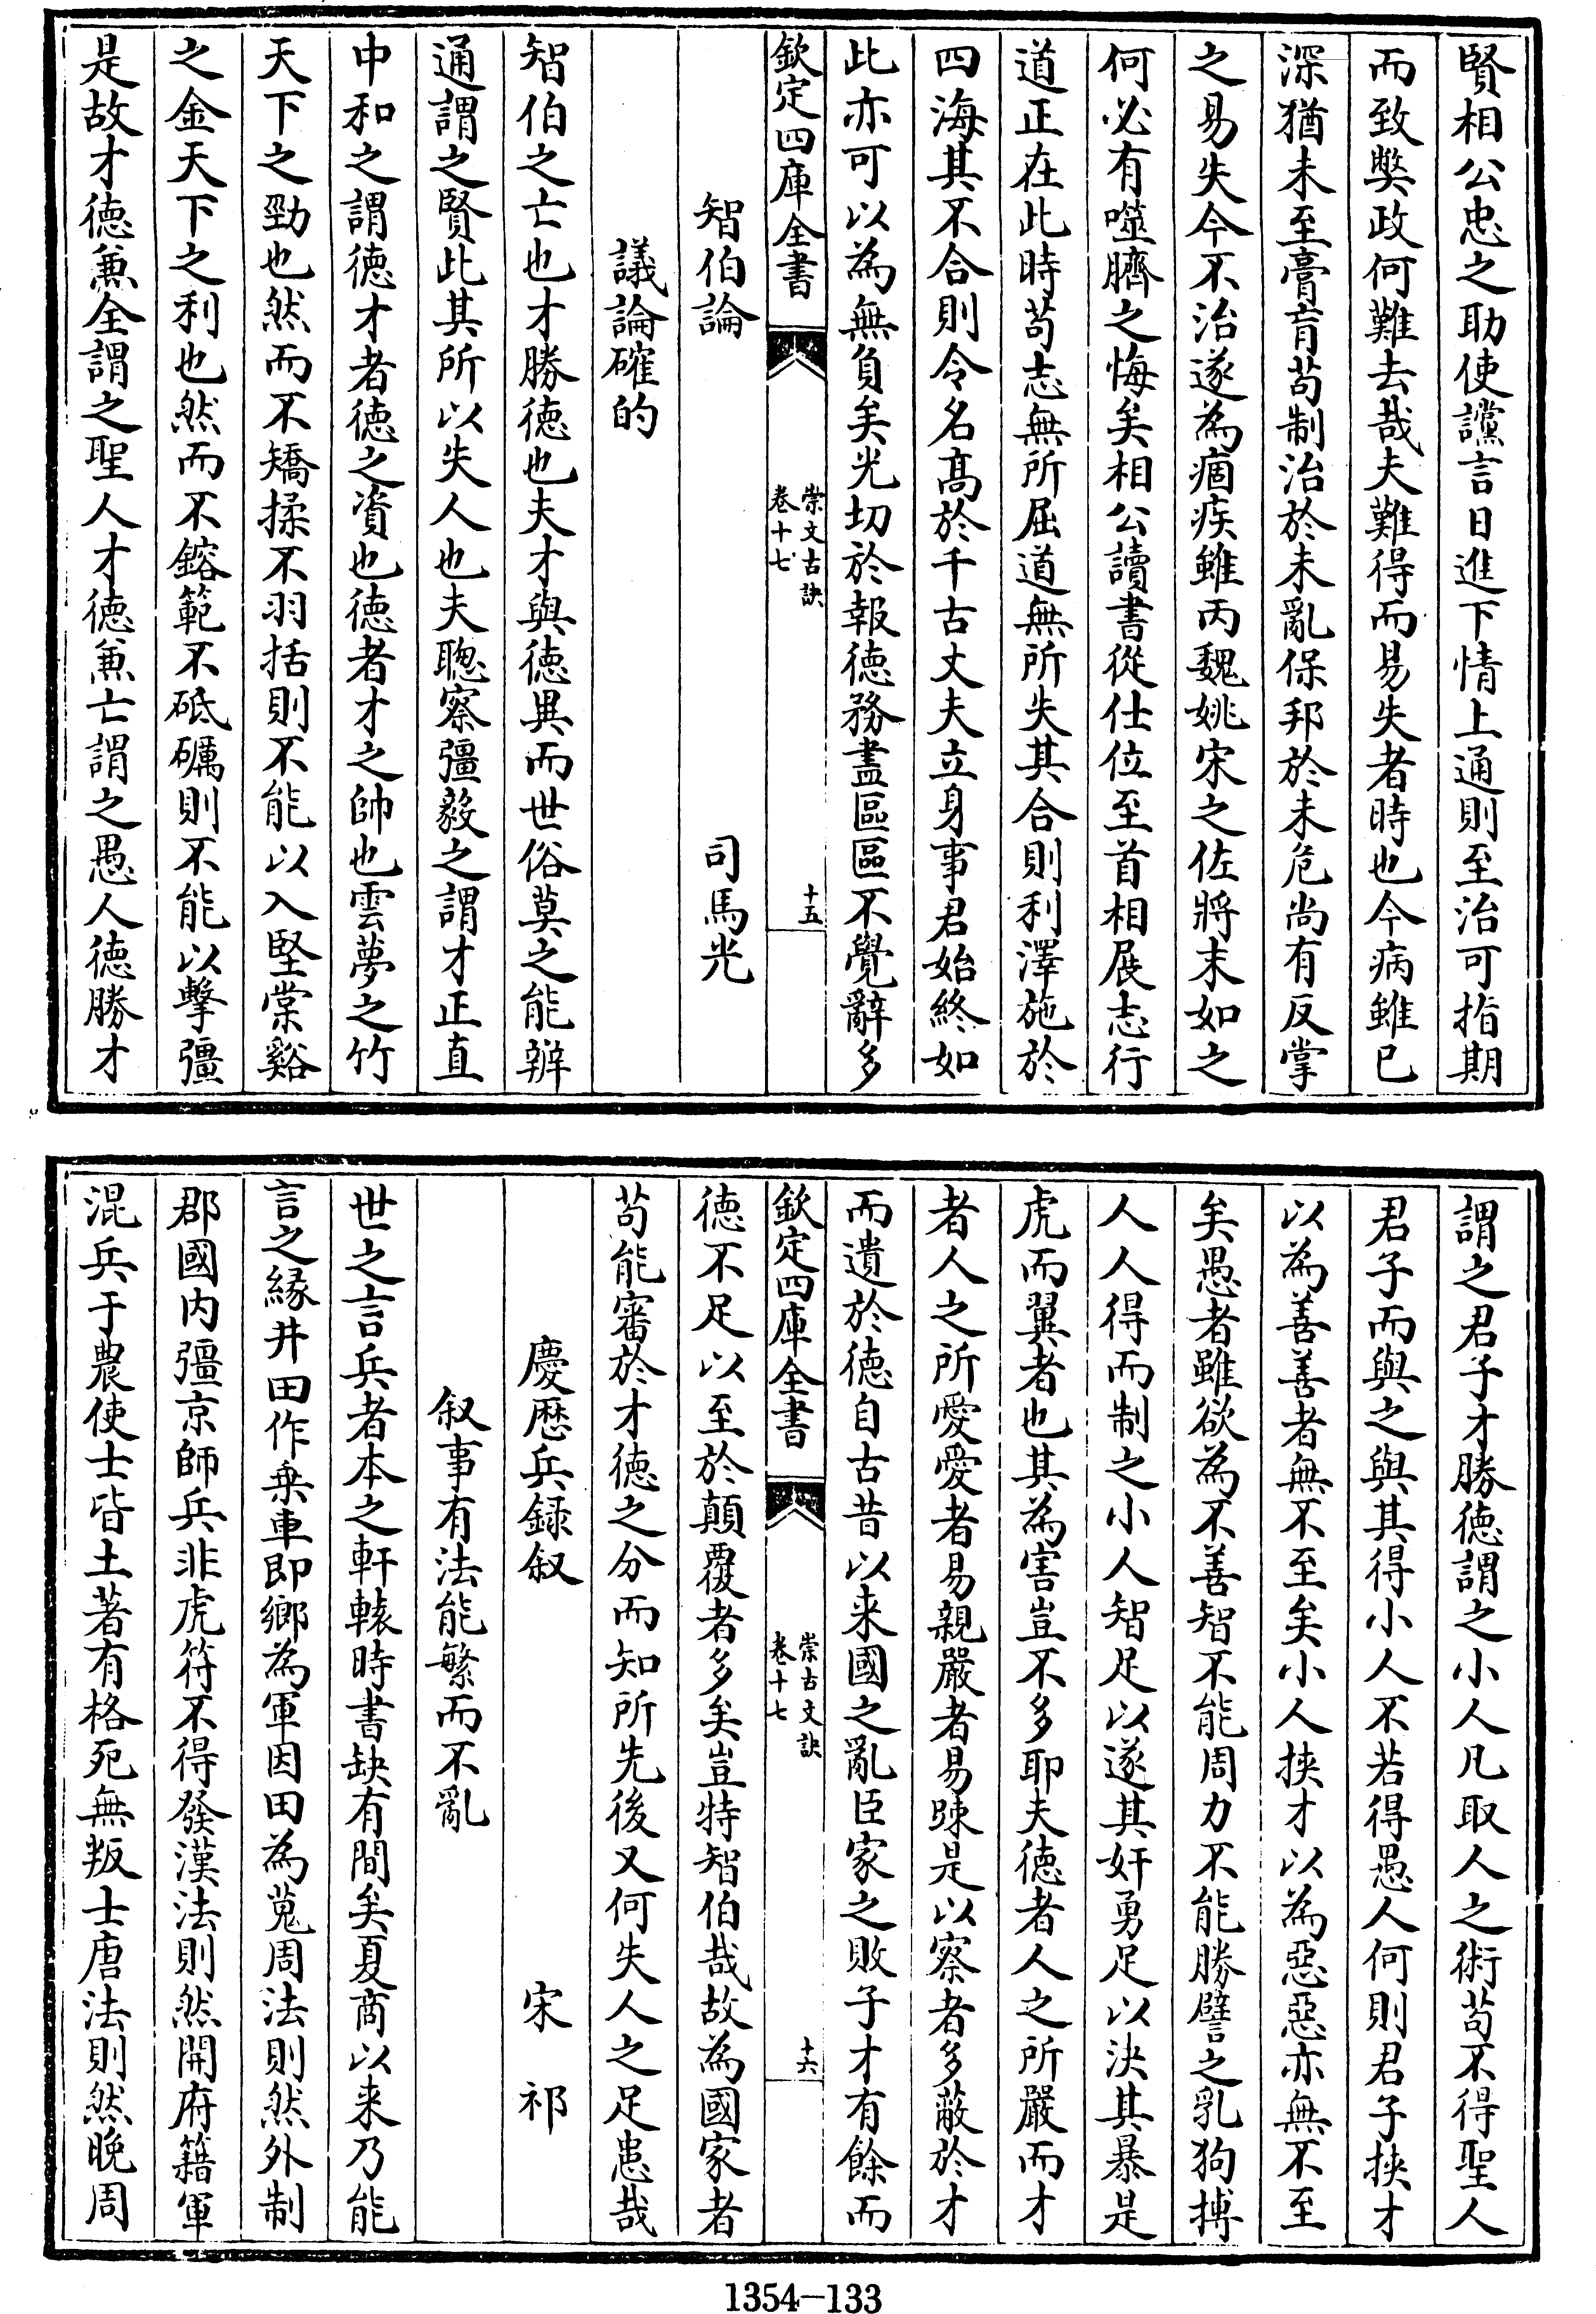 賢相公忠之助使讜言日進下情上通則至治可指期
而致弊政何難去哉夫難得而易失者時也今病雖已
深猶未至膏肓苟制治於未亂保邦於未危尚有反掌
之易失今不治遂為痼疾雖丙魏姚宋之佐將末如之
何必有噬臍之悔矣相公讀書從仕位至首相展志行
道正在此時苟志無所屈道無所失其合則利澤施於
四海其不合則令名髙於千古丈夫立身事君始終如
此亦可以為無負矣光切於報徳務盡區區不覺辭多
欽定四庫全書
崇文古訣
卷十七
十五
智伯論 司馬光
議論確的
智伯之亡也才勝徳也夫才與徳異而世俗莫之能辨
通謂之賢此其所以失人也夫聦察彊毅之謂才正直
中和之謂徳才者徳之資也徳者才之帥也雲夢之竹
天下之勁也然而不矯揉不羽括則不能以入堅棠谿
之金天下之利也然而不鎔範不砥礪則不能以擊彊
是故才徳兼全謂之聖人才徳兼亡謂之愚人徳勝才
謂之君子才勝徳謂之小人凡取人之術苟不得聖人
君子而與之與其得小人不若得愚人何則君子挾才
以為善善者無不至矣小人挾才以為惡惡亦無不至
矣愚者雖欲為不善智不能周力不能勝譬之乳狗搏
人人得而制之小人智足以遂其奸勇足以決其暴是
虎而翼者也其為害豈不多耶夫徳者人之所嚴而才
者人之所愛愛者易親嚴者易踈是以察者多蔽於才
而遺於徳自古昔以来國之亂臣家之敗子才有餘而
欽定四庫全書
崇古文訣
卷十七
十六
徳不足以至於顛覆者多矣豈特智伯哉故為國家者
苟能審於才徳之分而知所先後又何失人之足患哉
慶厯兵録叙 宋祁
叙事有法能繁而不亂
世之言兵者本之軒轅時書缺有間矣夏商以来乃能
言之縁井田作乗車即鄉為軍因田為蒐周法則然外制
郡國内彊京師兵非虎符不得發漢法則然開府籍軍
混兵于農使士皆土著有格死無叛士唐法則然晚周
1354—133